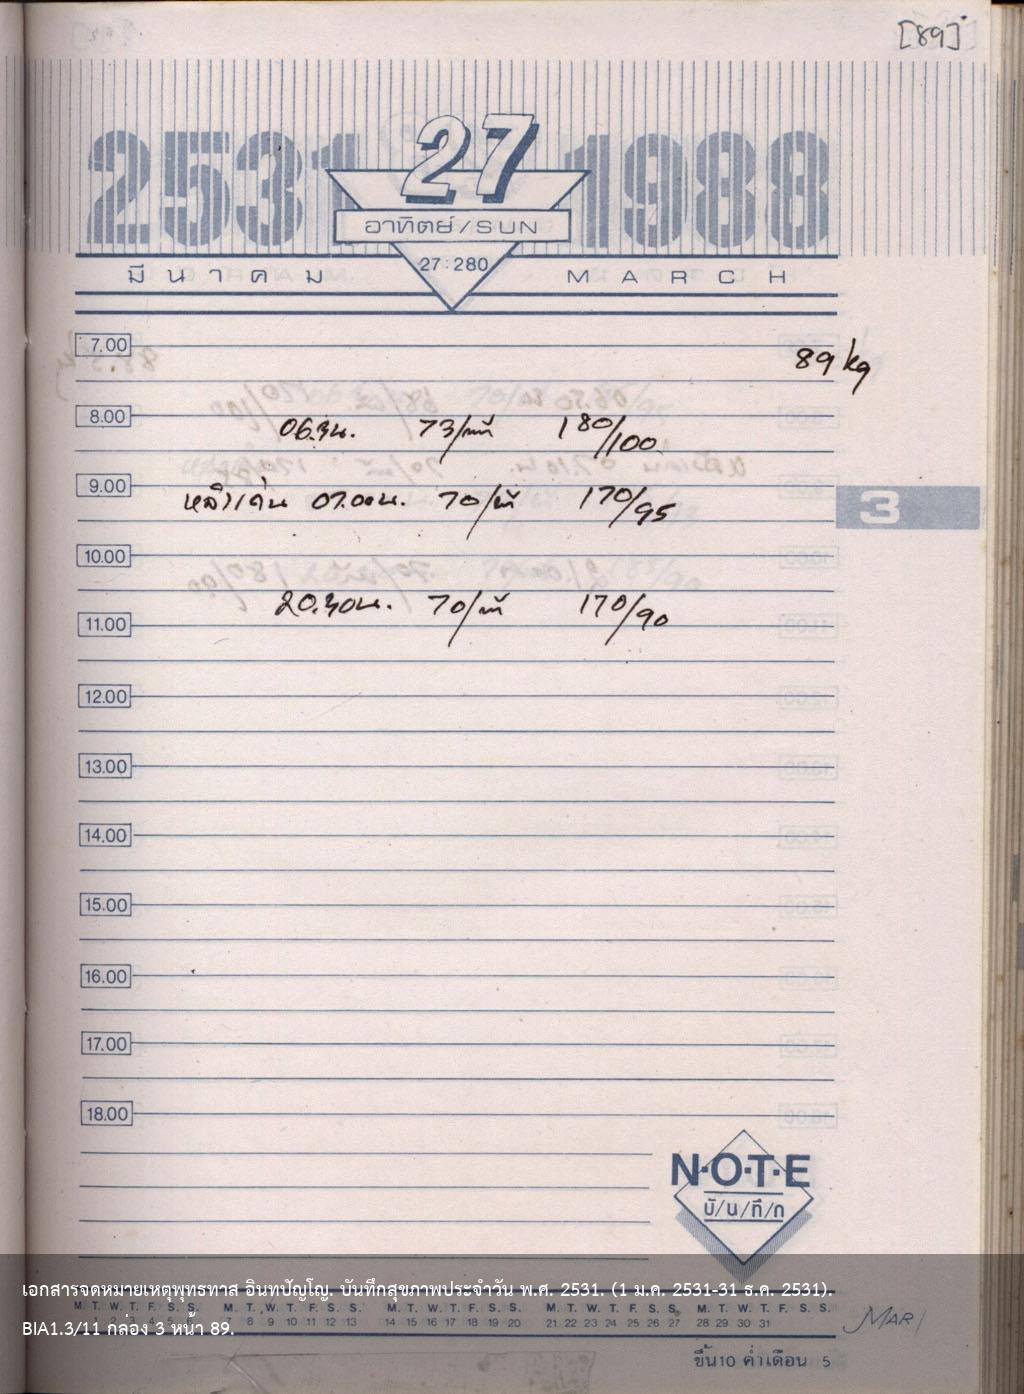 [89]
2531 27 1988
อาทิตย์/SUN
มีนาคม 27:280 MARCH
7.00
89 kg
8.00
73/นาที 180/100
9.00
หลังเดิน 07.00น. 70/นาที 170/95
3
10.00
20.30น. 70/นาที 170/90
11.00
12.00
13.00
14.00
15.00
16.00
17.00
18.00
N·O·T·E
บั/น/ทึ/ก
เอกสารจดหมายเหตุพุทธทาส อินทปัญโญ. บันทึกสุขภาพประจำวัน พ.ศ. 2531. (1 ม.ค. 2531-31 ธ.ค. 2531).
M. T. W. T. F. S. S. M. T. W. T. F. S. S. M. T. W. T. F. S. S. M. T. W. T. F. S. S. M. T. W. T. F. S. S.
1 2 3 4 5 6 7 8 9 10 11 12 13 14 15 16 17 18 19 20 21 22 23 24 25 26 27 28 29 30 31
MAR
BIA1.3/11 กล่อง 3 หน้า 89.
ขึ้น10 ค่ำเดือน 5